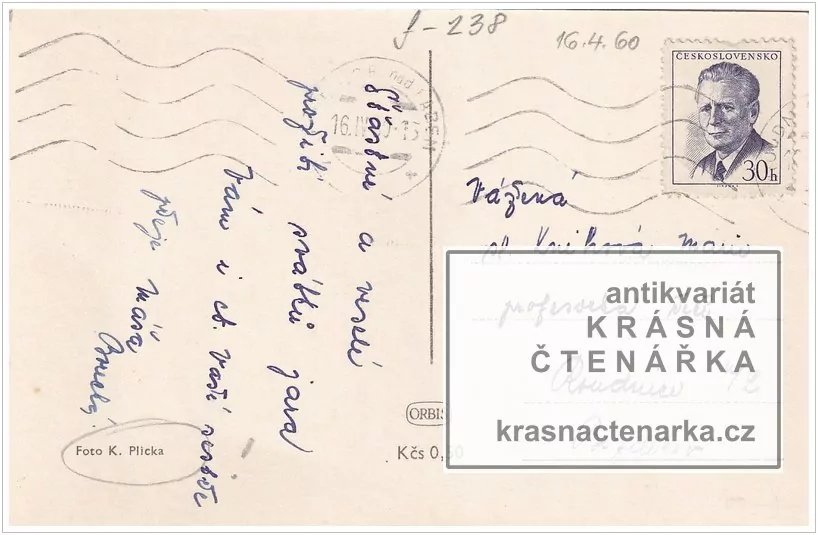 f-238
16.4.60
ČESKOSLOVENSKO
30h
Šťastné a veselé
prožití svátků jara
Vám i ct. Vaší sestře
přeje Máša
Vážená
sl. Marie
profesorka
Roudnice
antikvariát
KRÁSNÁ
ČTENÁŘKA
krasnactenarka.cz
ORBIS
Foto K. Plicka
Kčs 0,60